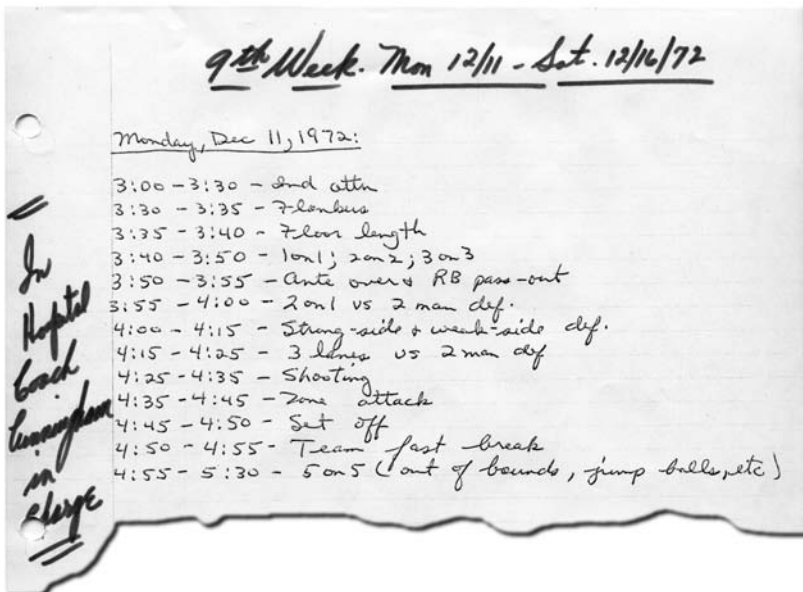 9th Week. Mon 12/11 - Sat. 12/16/72
Monday, Dec 11, 1972:
3:00 - 3:30 - Ind attn
3:30 - 3:35 -
3:35 - 3:40 - Floor length
3:40 - 3:50 - 1on1; 2on2; 3on3
3:50 - 3:55 - Ante over & RB pass-out
3:55 - 4:00 - 2on1 vs 2 man def.
4:00 - 4:15 - Strong-side & weak-side def.
4:15 - 4:25 - 3 lanes vs 2 man def
4:25 - 4:35 - Shooting
4:35 - 4:45 - Zone attack
4:45 - 4:50 - Set off
4:50 - 4:55 - Team fast break
4:55 - 5:30 - 5on5 (out of bounds, jump balls, etc)
In
Hospital
Coach
Cunningham
in
Charge